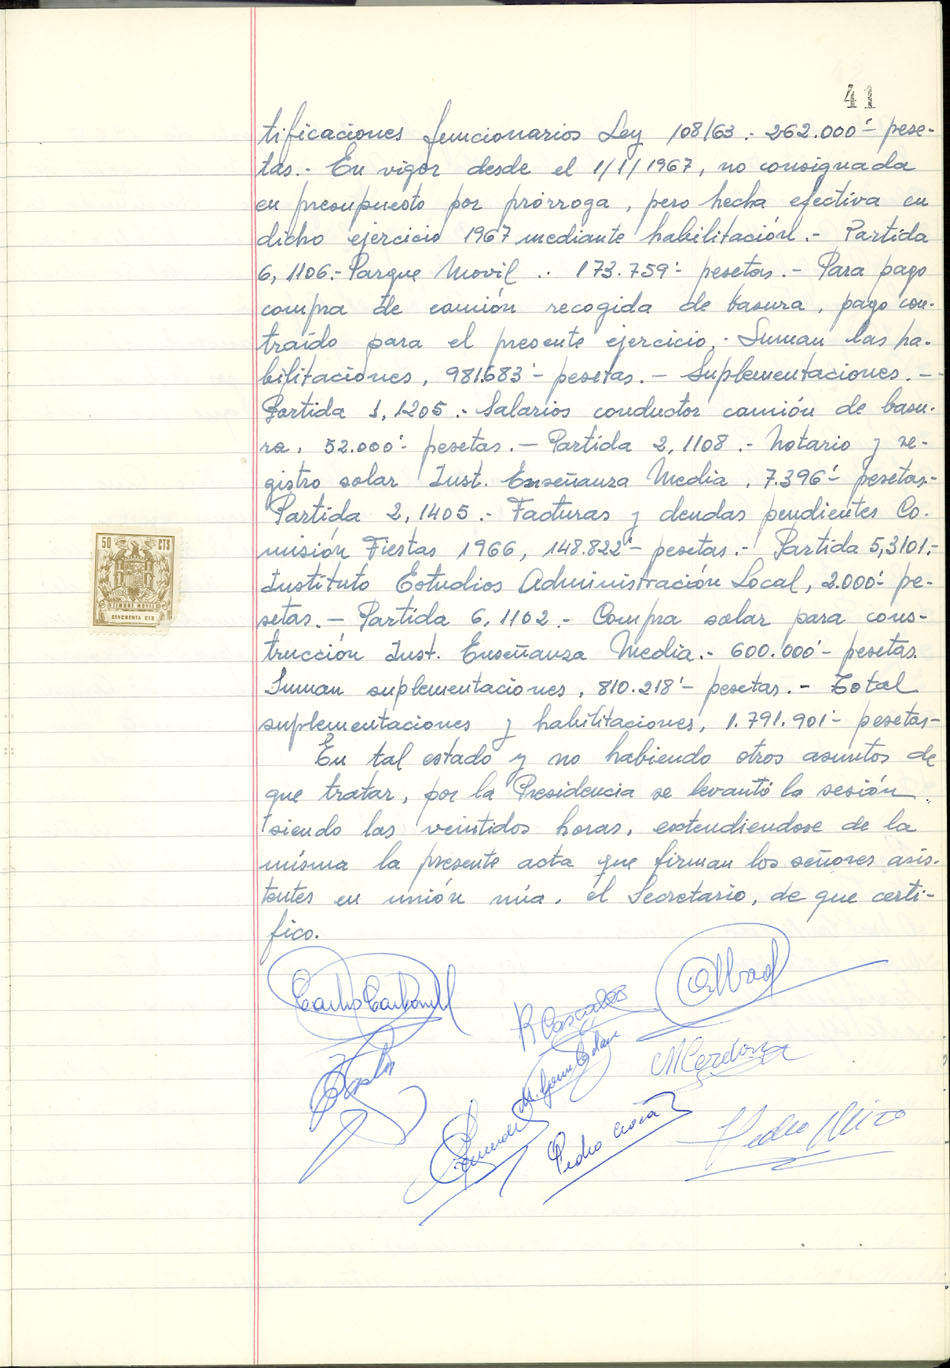 41
tificaciones funcionarios Ley 108/63.- 262.000'- pese-
tas.- En vigor desde el 1/1/1967, no consignada
en presupuesto por prórroga, pero hecha efectiva en
dicho ejercicio 1967 mediante habilitación.- Partida
6,1106.- Parque Movil .. 173.759'- pesetas.- Para pago
compra de camión recogida de basura, pago con-
traído para el presente ejercicio.- Suman las ha-
bilitaciones, 981.683'- pesetas.- Suplementaciones.-
Partida 1,1205.- Salarios conductor camión de basu-
ra, 52.000'- pesetas.- Partida 2,1108.- Notario y re-
gistro solar Inst. Enseñanza Media, 7.396'- pesetas.-
Partida 2,1405.- Facturas y deudas pendientes Co-
misión Fiestas 1966, 148.822'- pesetas.- Partida 5,3101.-
Instituto Estudios Administración Local, 2.000'- pe-
setas.- Partida 6,1102.- Compra solar para cons-
trucción Inst. Enseñanza Media.- 600.000'- pesetas.
Suman suplementaciones, 810.218'- pesetas.- Total
suplementaciones y habilitaciones, 1.791.901'- pesetas-
En tal estado y no habiendo otros asuntos de
que tratar, por la Presidencia se levantó la sesión
siendo las veintidos horas, extendiendose de la
misma la presente acta que firman los señores asis-
tentes en unión mía, el Secretario, de que certi-
fico.
50 CTS
TIMBRE MOVIL
CINCUENTA CTS
Carlos Carbonell
R Cascales
Abad
M Cerdona
Pedro Mico